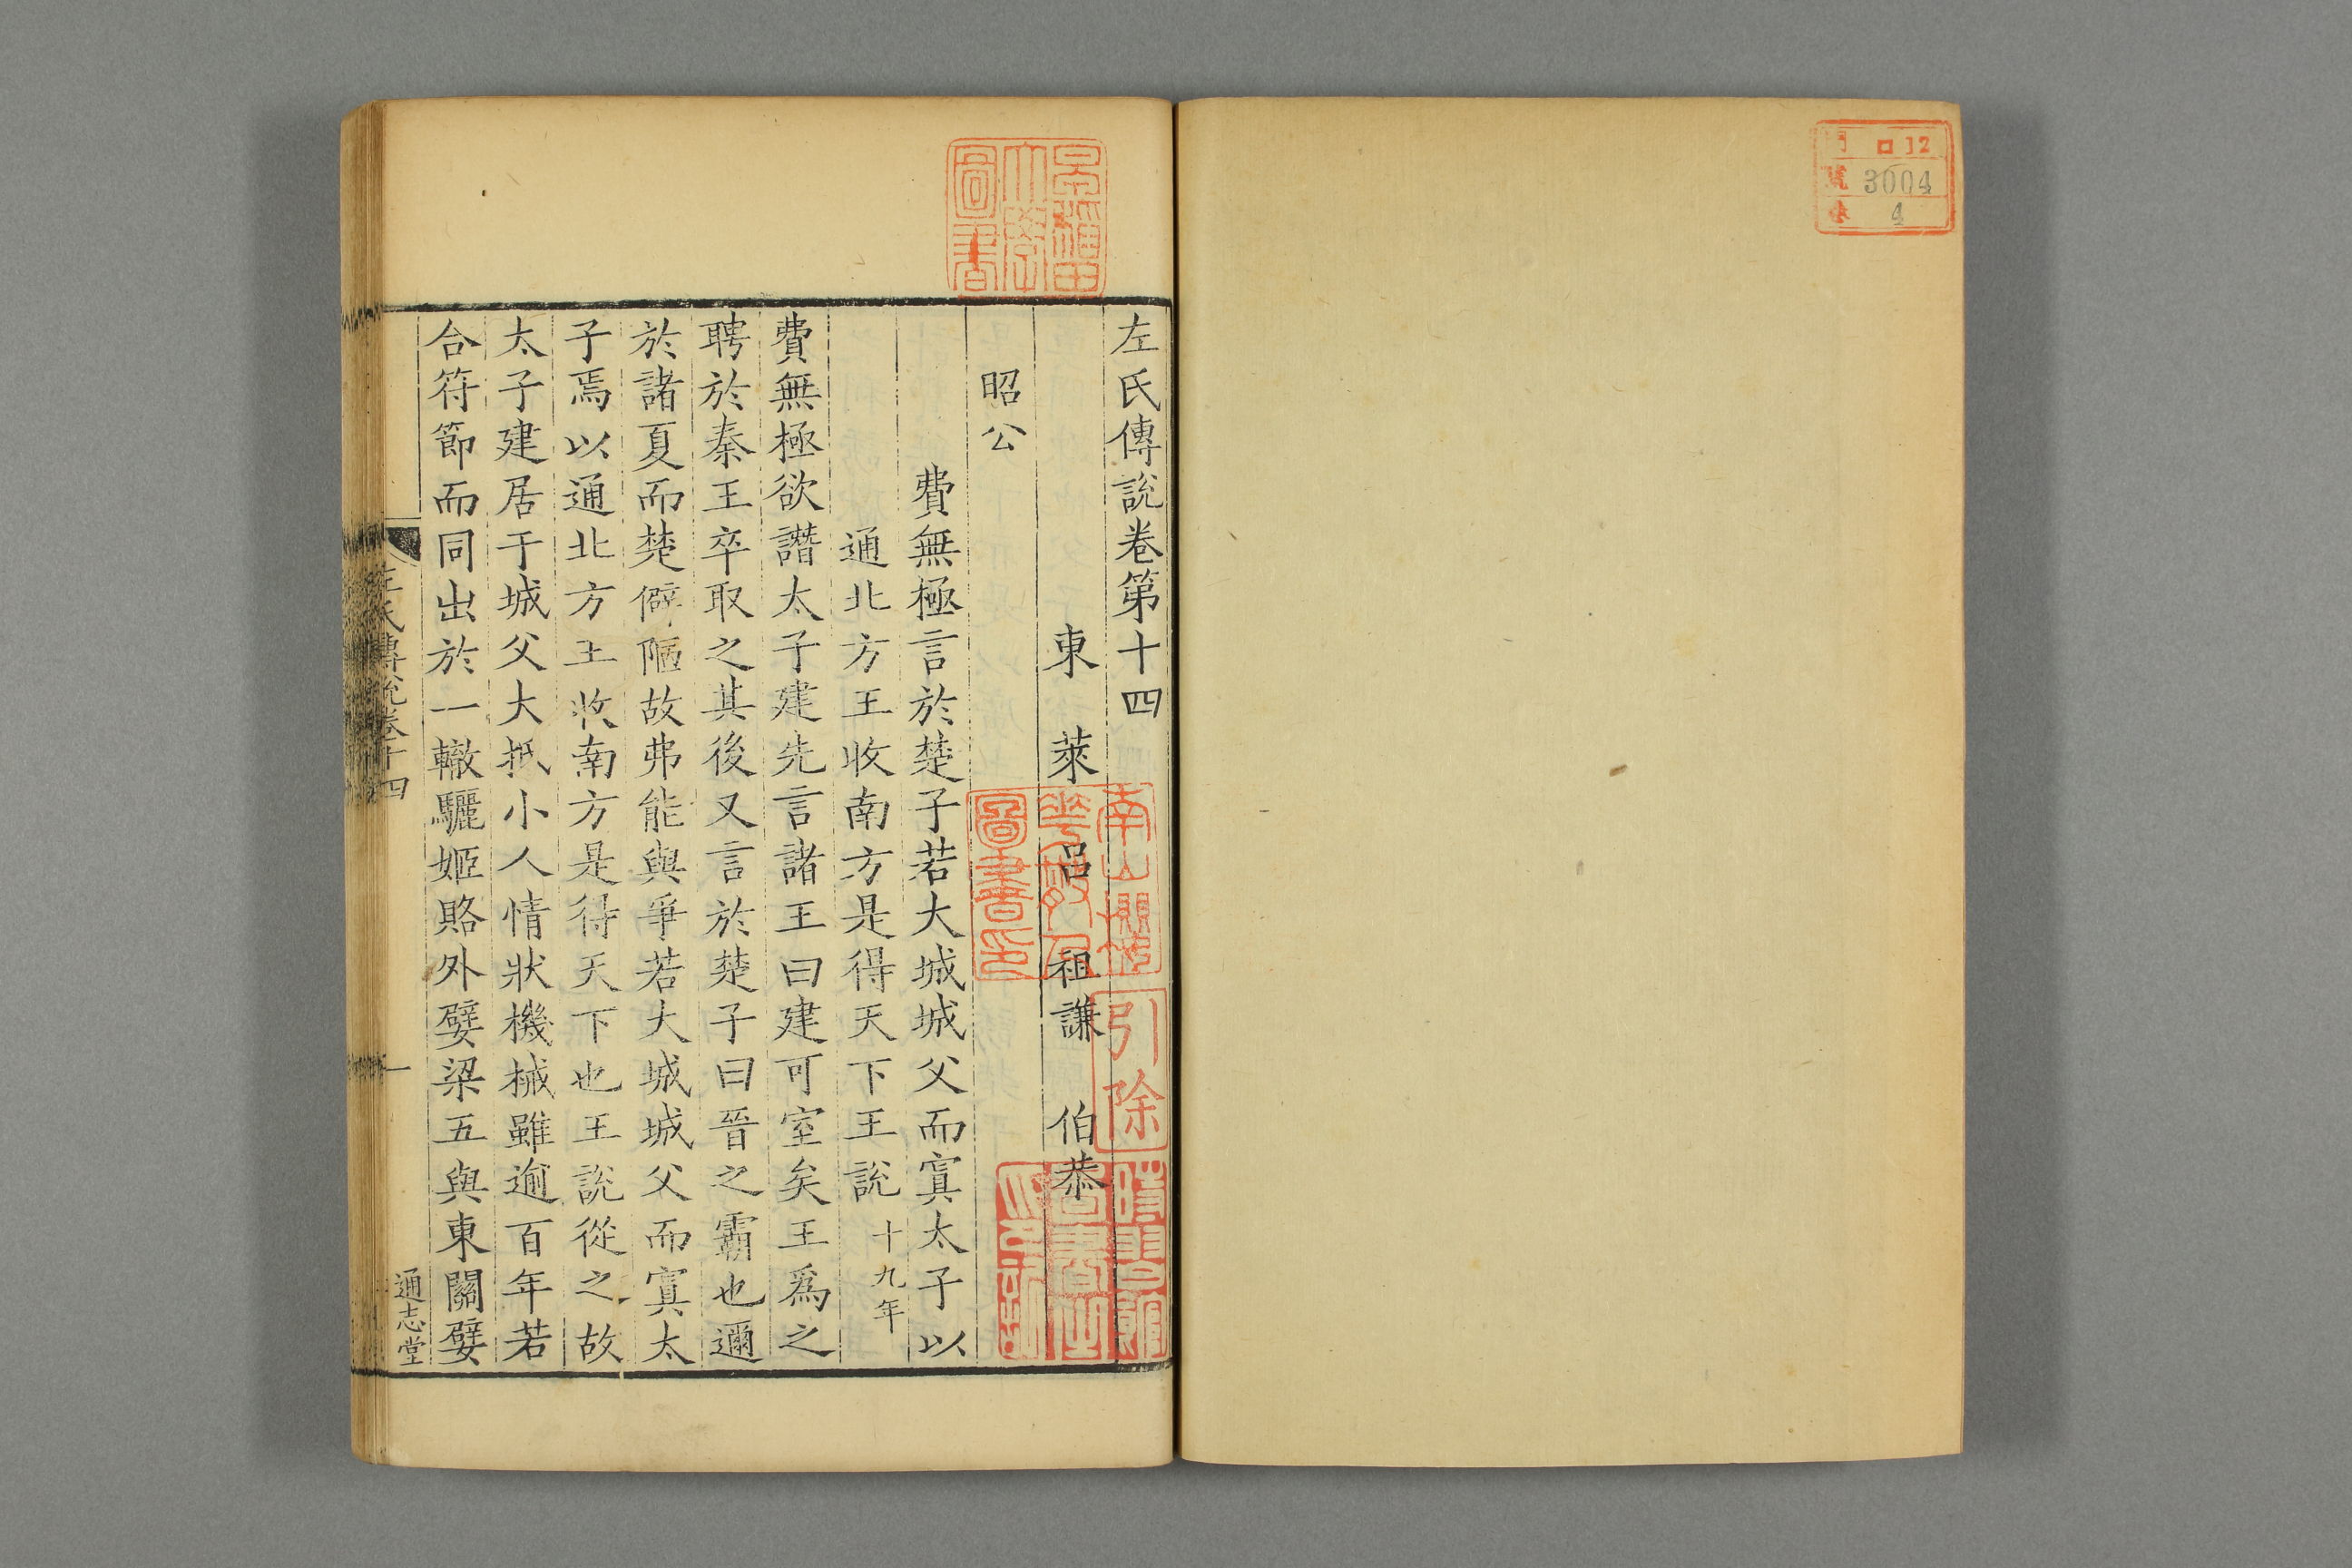 門 ロ12
號 3004
巻 4
早稲田大學圖書
左氏傳說卷第十四
東萊呂祖謙伯恭
昭公
費無極言於楚子若大城城父而寘太子以
通北方王收南方是得天下王說十九年
費無極欲譖太子建先言諸王曰建可室矣王爲之
聘於秦王卒取之其後又言於楚子曰晉之霸也邇
於諸夏而楚僻陋故弗能與爭若大城城父而寘太
子焉以通北方王收南方是得天下也王說從之故
太子建居于城父大抵小人情狀機械雖逾百年若
合符節而同出於一轍驪姬賂外嬖梁五與東關嬖
左氏傳說卷十四
一
通志堂
引除
圖書印